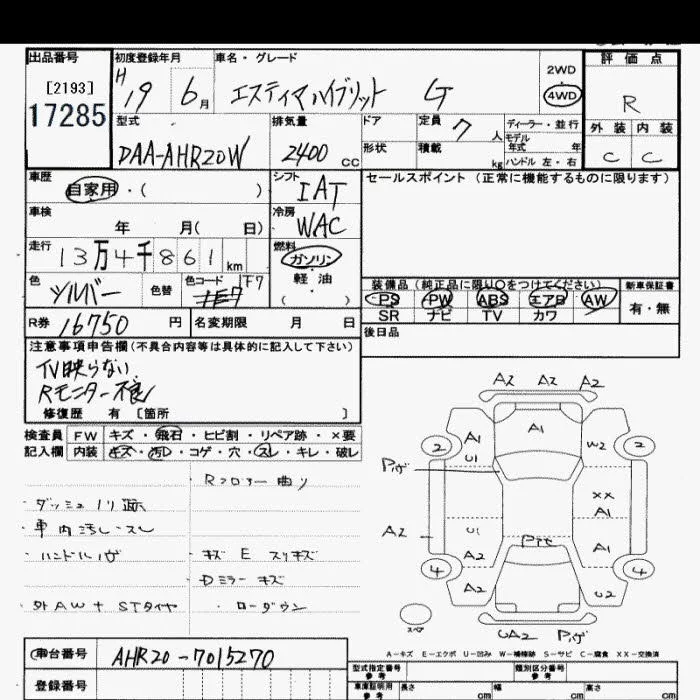 出品番号 初度登録年月 車名・グレード 評価点
[2193] H19 6月 エスティマハイブリット G 2WD
17285 4WD R
型式 排気量 ドア 定員 7人 ディーラー・並行 外装 内装
モデル年式 年
DAA-AHR20W 2400cc 形状 積載 kg ハンドル 左・右 C C
車歴 シフト セールスポイント (正常に機能するものに限ります)
自家用・( ) IAT
車検 冷房
年 月( 日) WAC
走行 燃料
13万4千861km ガソリン
色 色替 色コード 1F7 軽油
シルバー ( ) 装備品 (純正品に限り○をつけてください) 新車保証書
PS PW ABS エアB AW 有・無
R券 16750円 名変期限 月 日 SR ナビ TV カワ
注意事項申告欄(不具合内容等は具体的に記入して下さい) 後日品
TV映らない
Rモニター不良
修復歴 有 [箇所 ]
検査員 FW キズ・飛石・ヒビ割・リペア跡・×要
記入欄 内装 キズ・汚レ・コゲ・穴・スレ・キレ・破レ
Rフロアー曲り
ダッシュノリ跡
車内汚レ・スレ
ハンドルハゲ キズ E スリキズ
Dミラーキズ
外AW+STタイヤ ローダウン
A2 A2 A2
A1 A1
2 U1 W2 2
Pハゲ
XX
A1
A2 U1
A2 Pヤケ A1
4 4
A2 U2
スペア UA2 Pハゲ
A-キズ E-エクボ U-凹み W-補修跡 S-サビ C-腐食 XX-交換済
車台番号 AHR20-7015270
登録番号
型式指定番号 参考 類別区分番号 参考
車庫証明用 参考 長さ cm 幅 cm 高さ cm